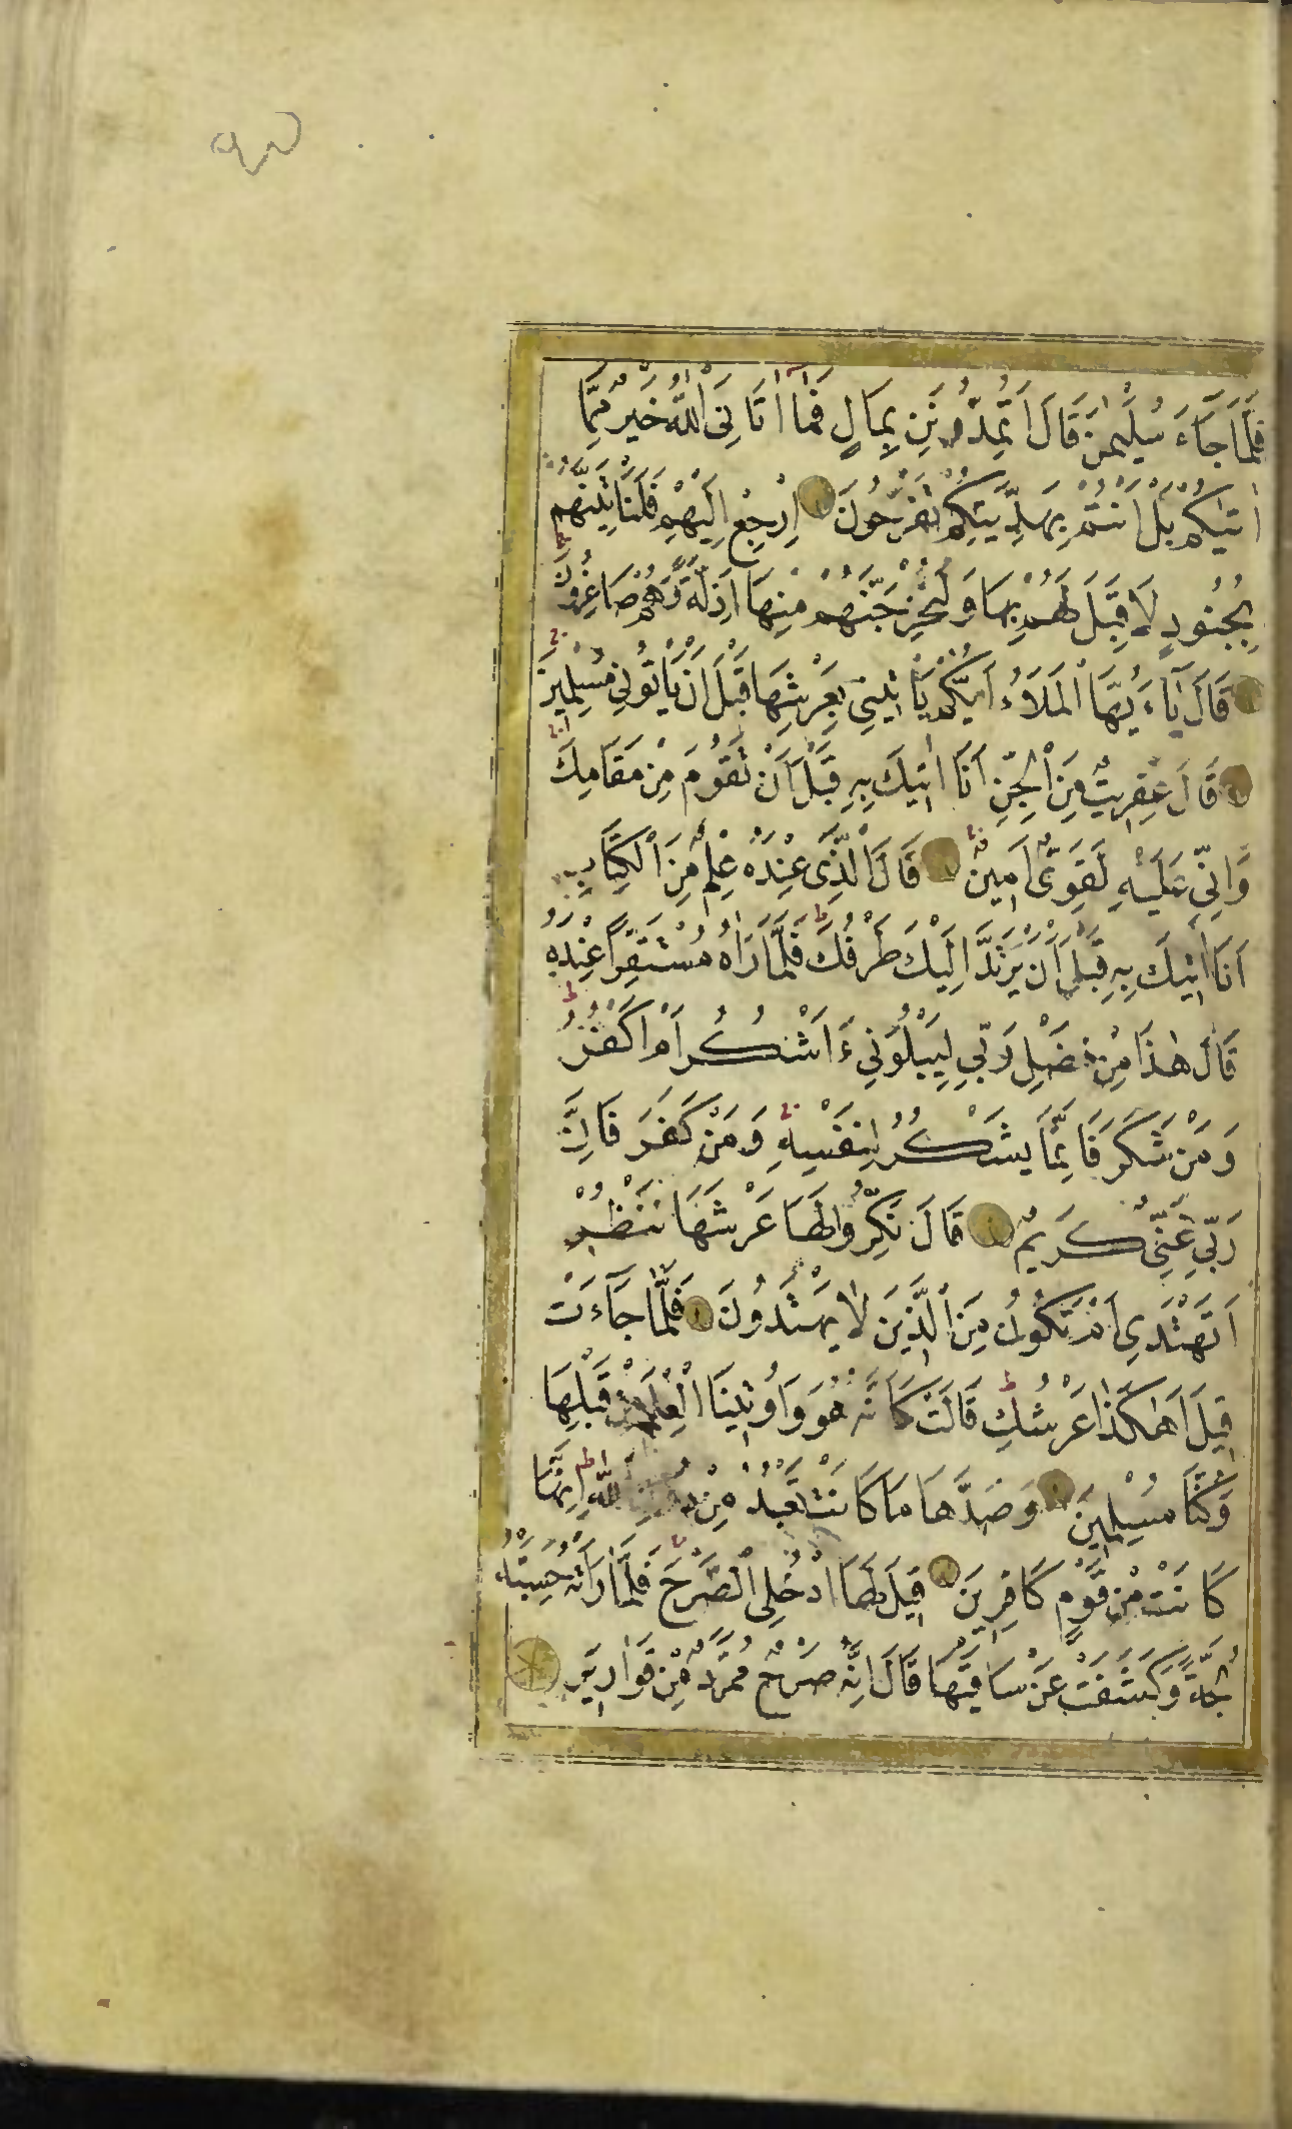 فَلَمَّا جَآءَ سُلَيْمٰنَ قَالَ اَتُمِدُّونَنِ بِمَالٍ فَمَآ اٰتَانِىَ اللّٰهُ خَيْرٌ مِمَّا
اٰتٰيكُمْ بَلْ اَنْتُمْ بِهَدِيَّتِكُمْ تَفْرَحُونَ اِرْجِعْ اِلَيْهِمْ فَلَنَاْتِيَنَّهُمْ
بِجُنُودٍ لَا قِبَلَ لَهُمْ بِهَا وَلَنُخْرِجَنَّهُمْ مِنْهَا اَذِلَّةً وَهُمْ صَاغِرُونَ
قَالَ يَآءَيُّهَا الْمَلَؤُا اَيُّكُمْ يَاْتِينِى بِعَرْشِهَا قَبْلَ اَنْ يَاْتُونِى مُسْلِمِينَ
قَالَ عِفْرِيتٌ مِنَ الْجِنِّ اَنَا اٰتِيكَ بِهِ قَبْلَ اَنْ تَقُومَ مِنْ مَقَامِكَ
وَاِنِّى عَلَيْهِ لَقَوِىٌّ اَمِينٌ قَالَ الَّذِى عِنْدَهُ عِلْمٌ مِنَ الْكِتَابِ
اَنَا اٰتِيكَ بِهِ قَبْلَ اَنْ يَرْتَدَّ اِلَيْكَ طَرْفُكَ فَلَمَّا رَاٰهُ مُسْتَقِرًّا عِنْدَهُ
قَالَ هٰذَا مِنْ فَضْلِ رَبِّى لِيَبْلُوَنِى ءَاَشْكُرُ اَمْ اَكْفُرُ
وَمَنْ شَكَرَ فَاِنَّمَا يَشْكُرُ لِنَفْسِهِ وَمَنْ كَفَرَ فَاِنَّ
رَبِّى غَنِىٌّ كَرِيمٌ قَالَ نَكِّرُوا لَهَا عَرْشَهَا نَنْظُرْ
اَتَهْتَدِى اَمْ تَكُونُ مِنَ الَّذِينَ لَا يَهْتَدُونَ فَلَمَّا جَآءَتْ
قِيلَ اَهٰكَذَا عَرْشُكِ قَالَتْ كَاَنَّهُ هُوَ وَاُوتِينَا الْعِلْمَ مِنْ قَبْلِهَا
وَكُنَّا مُسْلِمِينَ وَصَدَّهَا مَا كَانَتْ تَعْبُدُ مِنْ دُونِ اللّٰهِ اِنَّهَا
كَانَتْ مِنْ قَوْمٍ كَافِرِينَ قِيلَ لَهَا ادْخُلِى الصَّرْحَ فَلَمَّا رَاَتْهُ حَسِبَتْهُ
لُجَّةً وَكَشَفَتْ عَنْ سَاقَيْهَا قَالَ اِنَّهُ صَرْحٌ مُمَرَّدٌ مِنْ قَوَارِيرَ